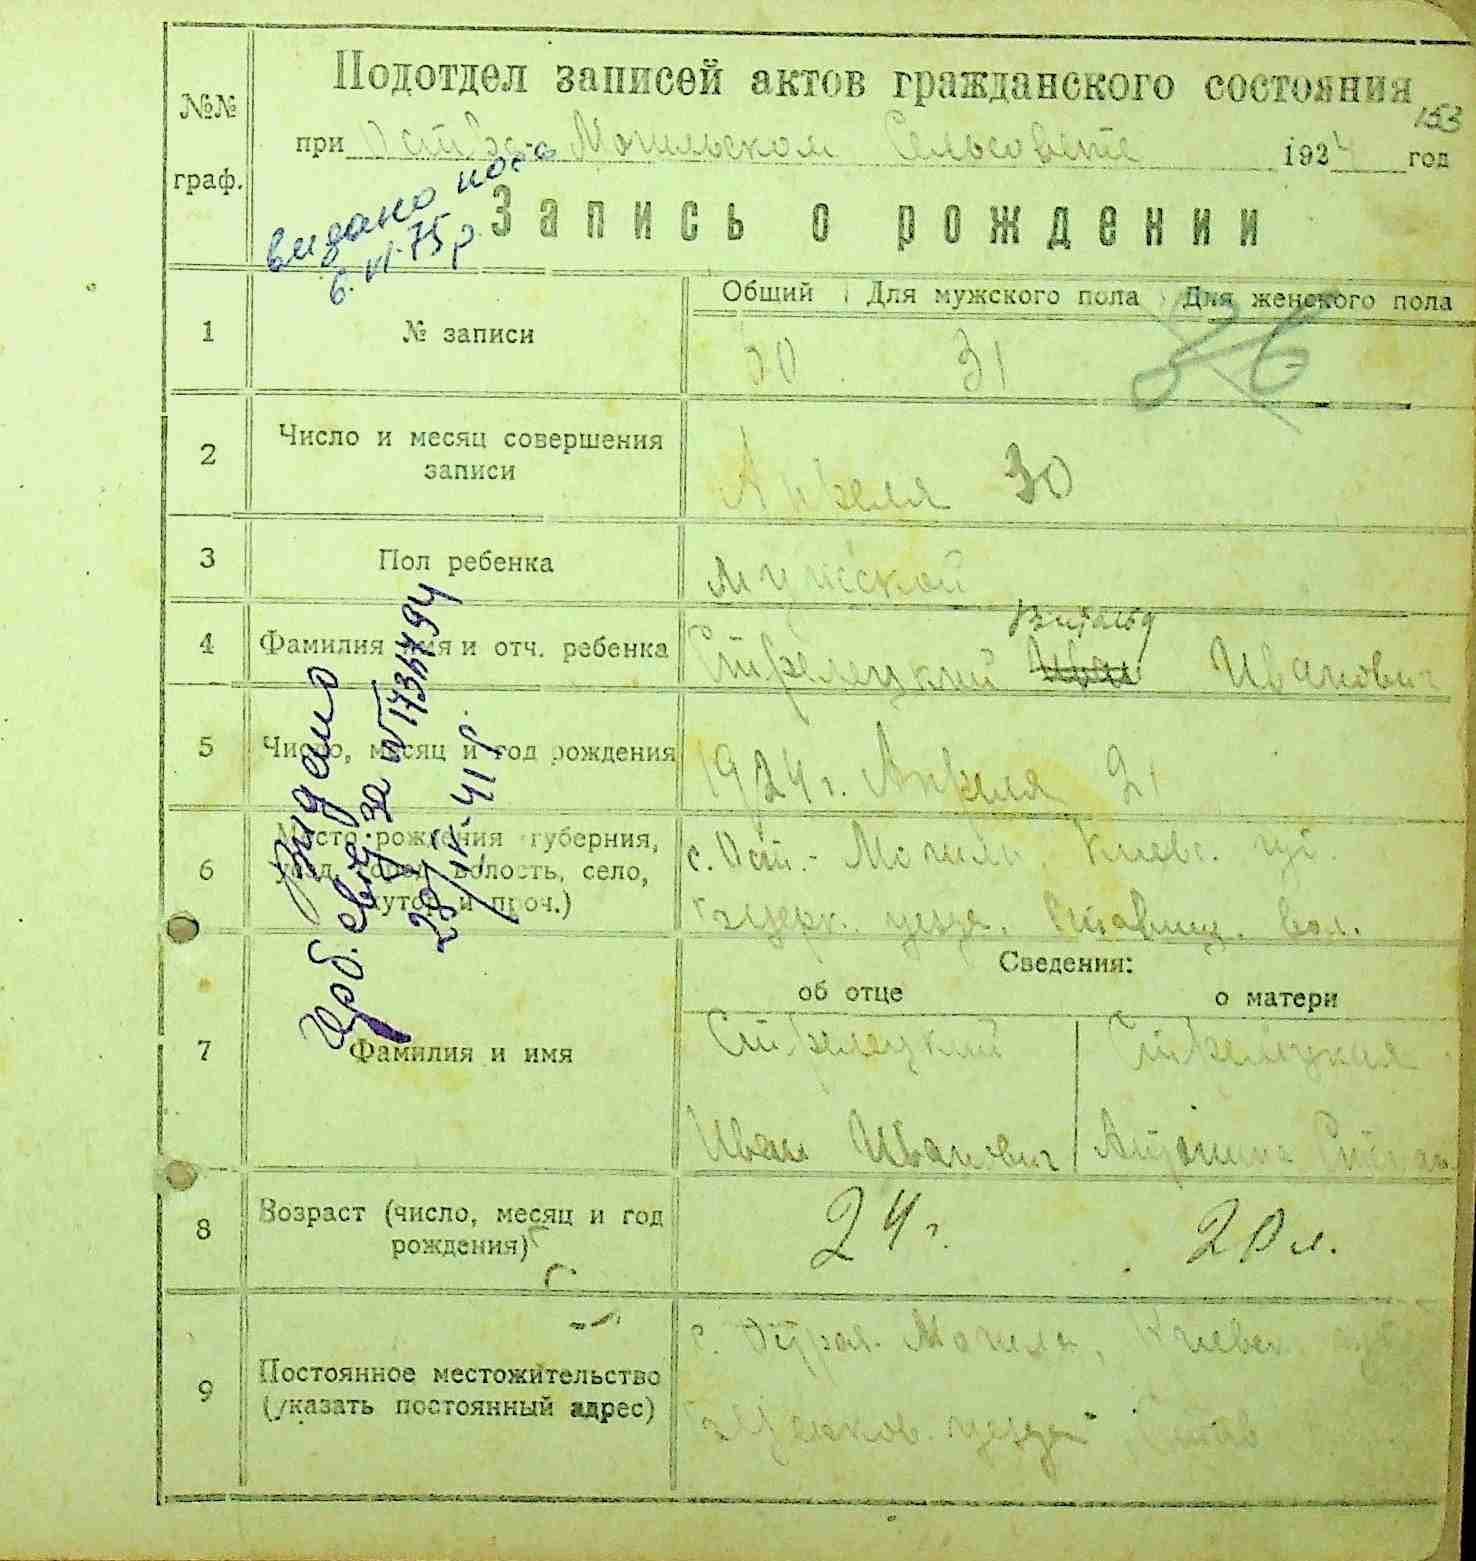 №№
граф.
Подотдел записей актов гражданского состояния
153
при Остро-Могильском Сельсовете 1924 год
видано
6.VI.75р.
Запись о рождении
1
№ записи
Общий Для мужского пола Для женского пола
50 31 36
2
Число и месяц совершения
записи
Апреля 30
3
Пол ребенка
мужской
4
Фамилия имя и отч. ребенка
Витольд
Стрелецкий Иван Иванович
5
Число, месяц и год рождения
1924 г. Апреля 21
6
Место рождения губерния,
уезд, город, волость, село,
хутор и проч.)
с. Ост.-Могила, Киевс. губ.
уезда. Ставищ. вол.
Видано
герб. свід. за №
29/IX-41 р.
7
Фамилия и имя
Сведения:
об отце
о матери
Стрелецкий
Иван Иванович
Стрелецкая
Антонина Степан
8
Возраст (число, месяц и год
рождения)
24 г.
20 л.
9
Постоянное местожительство
(указать постоянный адрес)
с. Острая Могила, Киевск. губ
уезда Став